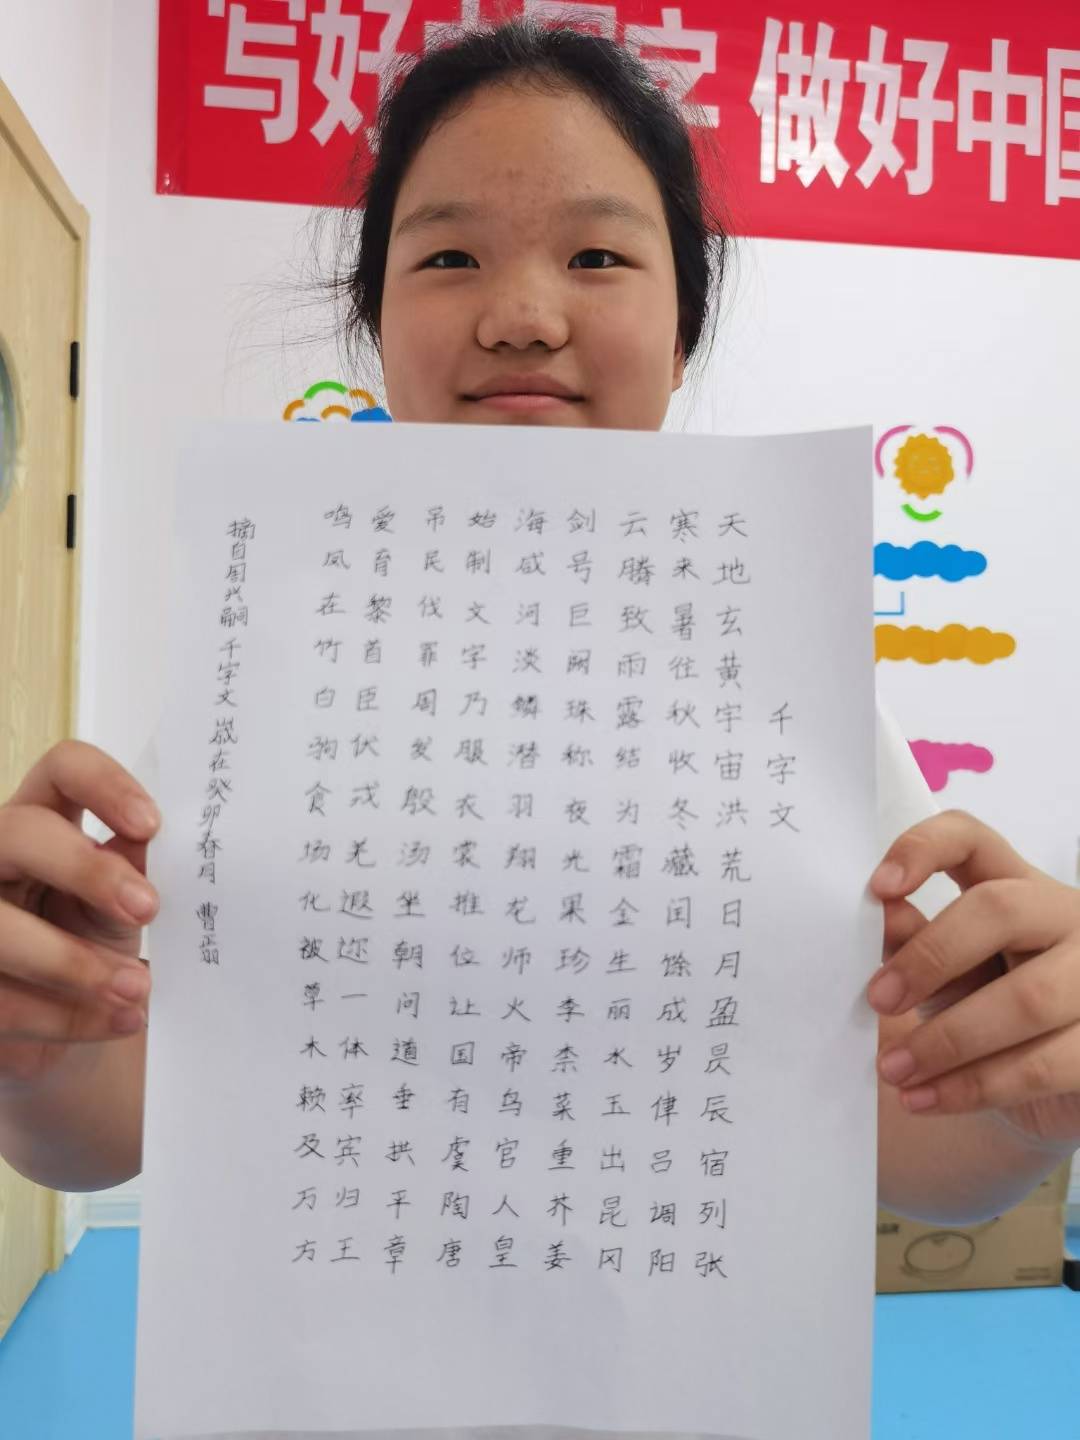 写好中国字 做好中国
千字文
天地玄黄宇宙洪荒日月盈昃辰宿列张
寒来暑往秋收冬藏闰馀成岁律吕调阳
云腾致雨露结为霜金生丽水玉出昆冈
剑号巨阙珠称夜光果珍李柰菜重芥姜
海咸河淡鳞潜羽翔龙师火帝鸟官人皇
始制文字乃服衣裳推位让国有虞陶唐
吊民伐罪周发殷汤坐朝问道垂拱平章
爱育黎首臣伏戎羌遐迩一体率宾归王
鸣凤在竹白驹食场化被草木赖及万方
摘自周兴嗣千字文 岁在癸卯春月 曹